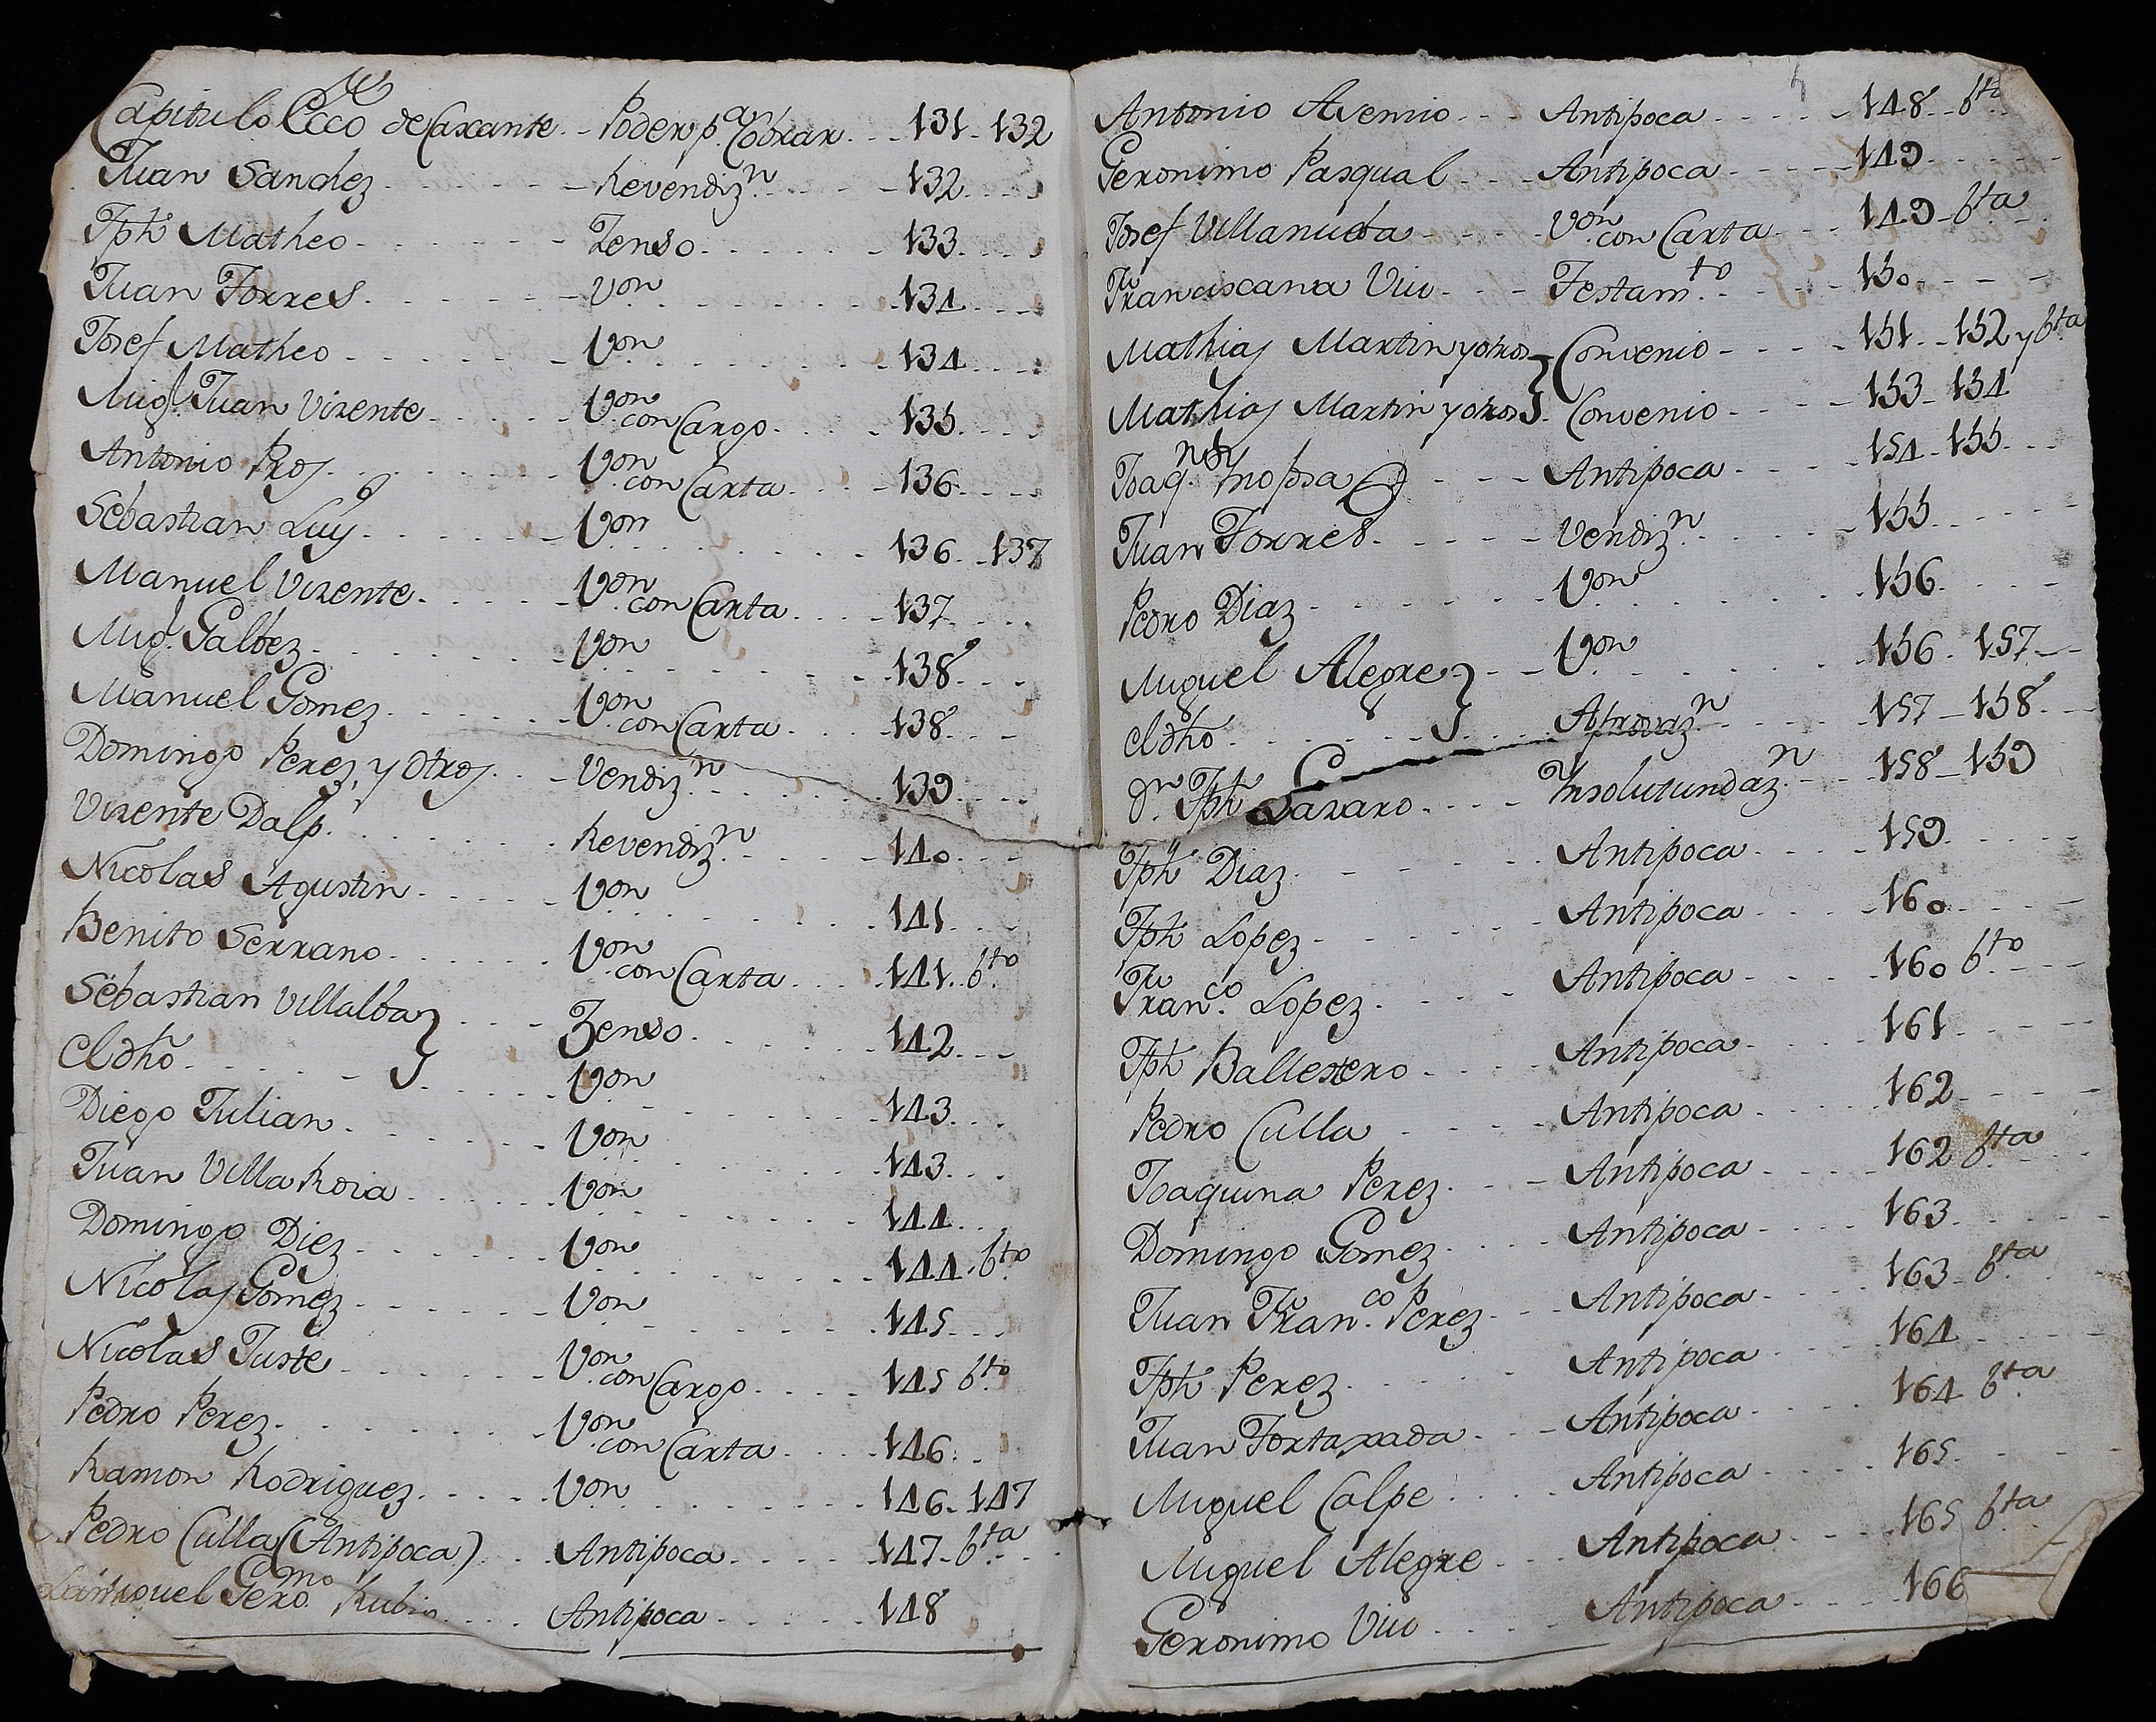 Capitulo Ecco de Caxante - Poder p.ª Cobrar - 131 - 132
Juan Sanchez - Revendiz.n - 132
Jph Matheo - Zenso - 133
Juan Torres - Von - 134
Josef Matheo - Von - 134
Mig.l Juan Vizente - Von con Cargo - 135
Antonio Pros - Von con Carta - 136
Sebastian Luys - Von - 136 - 137
Manuel Vizente - Von con Carta - 137
Mig.l Galbez - Von - 138
Manuel Gomez - Von con Carta - 138
Domingo Perez, y Otros - Vendiz.n - 139
Vizente Dalp. - Revendiz.n - 140
Nicolas Agustin - Von - 141
Benito Serrano - Von con Carta - 141 bto
Sebastian Villalba } - Zenso - 142
El dho } - Von - 143
Diego Julian - Von - 143
Juan Villa Roia - Von - 144
Domingo Diez - Von - 144 bto
Nicolas Gomez - Von - 145
Nicolas Juste - Von con Cargo - 145 bto
Pedro Perez - Von con Carta - 146
Ramon Rodriguez - Von - 146 - 147
Pedro Culla (Antipoca) - Antipoca - 147 - bta
Gero.mo Rubio - Antipoca - 148
Antonio Asensio - Antipoca - 148 - bto
Geronimo Pasqual - Antipoca - 149
Josef Villanueba - Von con Carta - 149 - bta
Franciscana Viu - Testam.to - 150
Mathias Martin y otros } Convenio - 151 - 152 y bta
Mathias Martin y otros } Convenio - 153 - 154
Joaq.n - Antipoca - 154 - 155
Juan Torres - Vendiz.n - 155
Pedro Diaz - Von - 156
Miguel Alegre } - Von - 156 - 157
el dho } - Aprovaz.n - 157 - 158
Dn. Jph Lazaro - Ynsolutundaz.n - 158 - 159
Jph Diaz - Antipoca - 159
Jph Lopez - Antipoca - 160
Fran.co Lopez - Antipoca - 160 bto
Jph Ballestero - Antipoca - 161
Pedro Culla - Antipoca - 162
Joaquina Perez - Antipoca - 162 bta
Domingo Gomez - Antipoca - 163
Juan Fran.co Perez - Antipoca - 163 - bta
Jph Perez - Antipoca - 164
Juan Fortaxada - Antipoca - 164 bta
Miguel Calpe - Antipoca - 165
Miguel Alegre - Antipoca - 165 bta
Geronimo Viu - Antipoca - 166